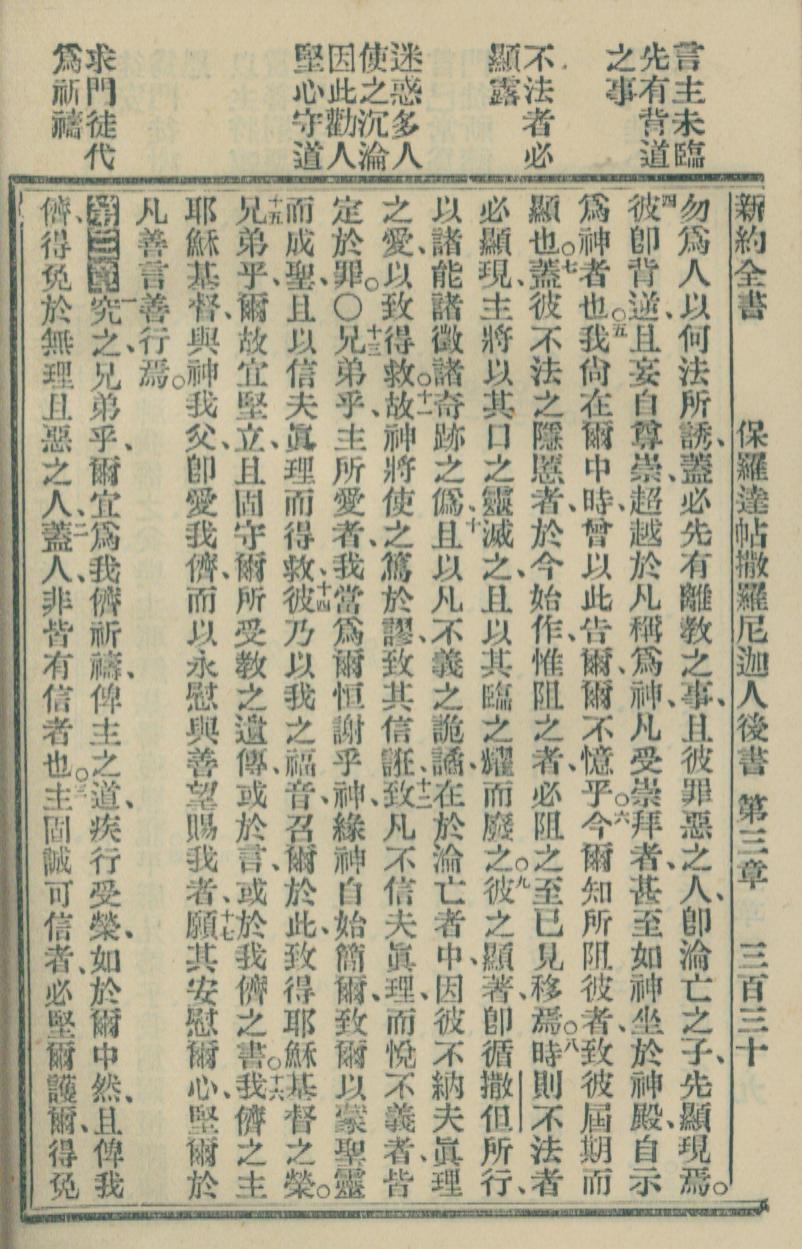 言主未臨
先有背道
之事
不法者必
顯露
迷惑多人
使之沉淪
因此勸人
堅心守道
求門徒代
爲祈禱
新約全書 保羅達帖撒羅尼迦人後書 第三章 三百三十
勿爲人以何法所誘、蓋必先有離教之事、且彼罪惡之人、卽淪亡之子、先顯現焉。
四彼卽背逆、且妄自尊崇、超越於凡稱爲神、凡受崇拜者、甚至如神坐於神殿、自示
爲神者也。五我尙在爾中時、曾以此告爾、爾不憶乎。六今爾知所阻彼者、致彼屆期而
顯也。七蓋彼不法之隱慝者、於今始作、惟阻之者、必阻之至已見移焉。八時則不法者
必顯現、主將以其口之靈滅之、且以其臨之耀而廢之。九彼之顯著、卽循撒但所行、
以諸能諸徵諸奇跡之僞、十且以凡不義之詭譎、在於淪亡者中、因彼不納夫眞理
之愛、以致得救。十一故神將使之篤於謬、致其信誑、十二致凡不信夫眞理、而悅不義者、皆
定於罪。〇十三兄弟乎、主所愛者、我當爲爾恒謝乎神、緣神自始簡爾、致爾以蒙聖靈
而成聖、且以信夫眞理而得救、十四彼乃以我之福音召爾於此、致得耶穌基督之榮。
十五兄弟乎、爾故宜堅立、且固守爾所受教之遺傳、或於言、或於我儕之書。十六我儕之主
耶穌基督、與神我父、卽愛我儕、而以永慰與善望賜我者、十七願其安慰爾心、堅爾於
凡善言善行焉。
第三章一究之、兄弟乎、爾宜爲我儕祈禱、俾主之道、疾行受榮、如於爾中然、二且俾我
儕得免於無理且惡之人、蓋人非皆有信者也。三主固誠可信者、必堅爾護爾、得免